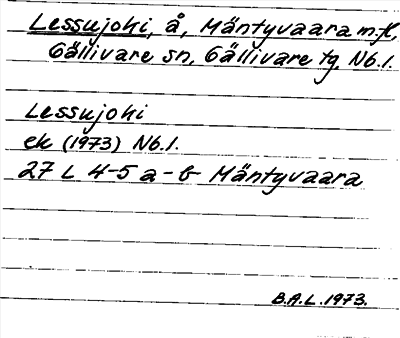 Lessujoki, å, Mäntyvaara m.fl.,
Gällivare sn, Gällivare tg, Nb.l.
Lessujoki
ek (1973) Nb.l.
27 L 4-5 a-b Mäntyvaara
B.A.L. 1973.